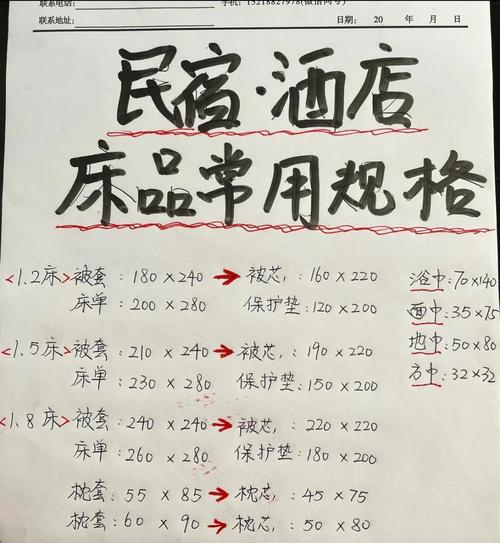 联系电话:
手机: 13218827978(微信同号)
联系地址:
日期: 20 年 月 日
民宿·酒店
床品常用规格
<1.2床> 被套: 180×240 → 被芯: 160×220
床单: 200×280 保护垫: 120×200
<1.5床> 被套: 210×240 → 被芯: 190×220
床单: 230×280 保护垫: 150×200
<1.8床> 被套: 240×240 → 被芯: 220×220
床单: 260×280 保护垫: 180×200
枕套: 55×85 → 枕芯: 45×75
枕套: 60×90 → 枕芯: 50×80
浴中: 70×140
面中: 35×75
地中: 50×80
方中: 32×32